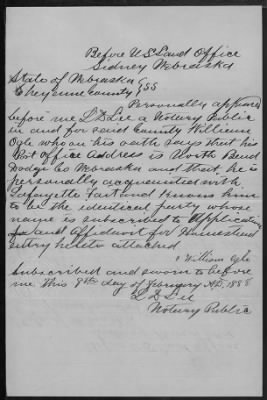 Before U.S. Land Office
Sidney Nebraska
State of Nebraska
Cheyenne County } SS
Personally appeared
before me L D Lee a Notary Public
in and for said County William
Ogle who on his oath says that his
Post Office Address is North Bend
Dodge Co Nebraska and that he is
personally acquainted with
Lafayette and knows him
to be the identical party whose
name is subscribed to Application
and Affidavit for Homestead
entry hereto attached
William Ogle
Subscribed and sworn to before
me this 8th day of February A.D. 1888
L D Lee
Notary Public